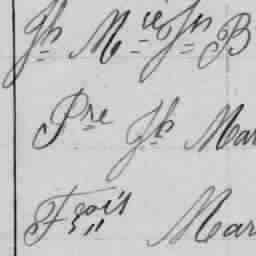 Jh Mie Jn B
Pre Jh Mar
Frois Mar